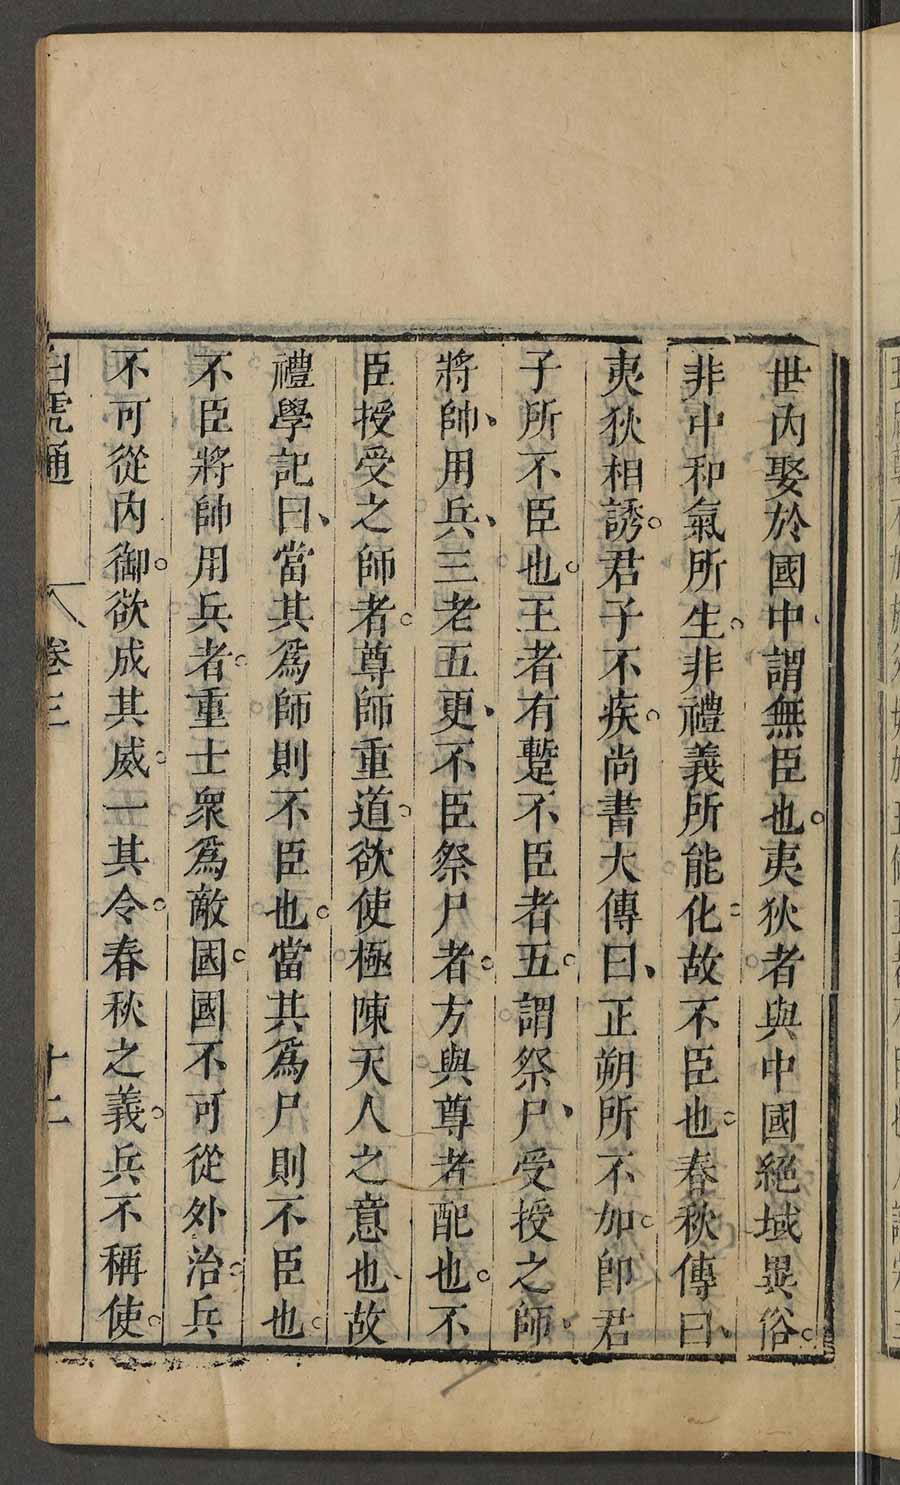 世内娶於國中謂無臣也。夷狄者與中國絕域異俗。
非中和氣所生。非禮義所能化。故不臣也。春秋傳曰、
夷狄相誘。君子不疾。尚書大傳曰、正朔所不加。即君
子所不臣也。王者有蹔不臣者五。謂祭尸、受授之師、
將帥、用兵、三老五更、不臣祭尸者。方與尊者配也。不
臣授受之師者。尊師重道。欲使極陳天人之意也、故
禮學記曰、當其爲師則不臣也。當其爲尸則不臣也。
不臣將帥用兵者。重士衆爲敵國。國不可從外治。兵
不可從内御。欲成其威。一其令。春秋之義。兵不稱使。
白虎通 卷三 十二